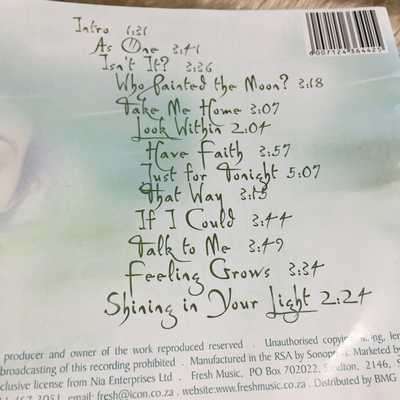 Intro 1:31
As One 3:41
Isn't It? 3:36
Who Painted the Moon? 3:18
Take Me Home 3:07
Look Within 2:04
Have Faith 3:57
Just for Tonight 5:07
That Way 3:15
If I Could 3:44
Talk to Me 3:49
Feeling Grows 3:34
Shining in Your Light 2:24
6007124364425
producer and owner of the work reproduced reserved . Unauthorised copying,
broadcasting of this recording prohibited . Manufactured in the RSA by Marketed b
clusive license from Nia Enterprises Ltd . Fresh Music, PO Box 702022, 2146, S
3051 email: fresh@icon.co.za . website:www.freshmusic.co.za . Distributed by BMG